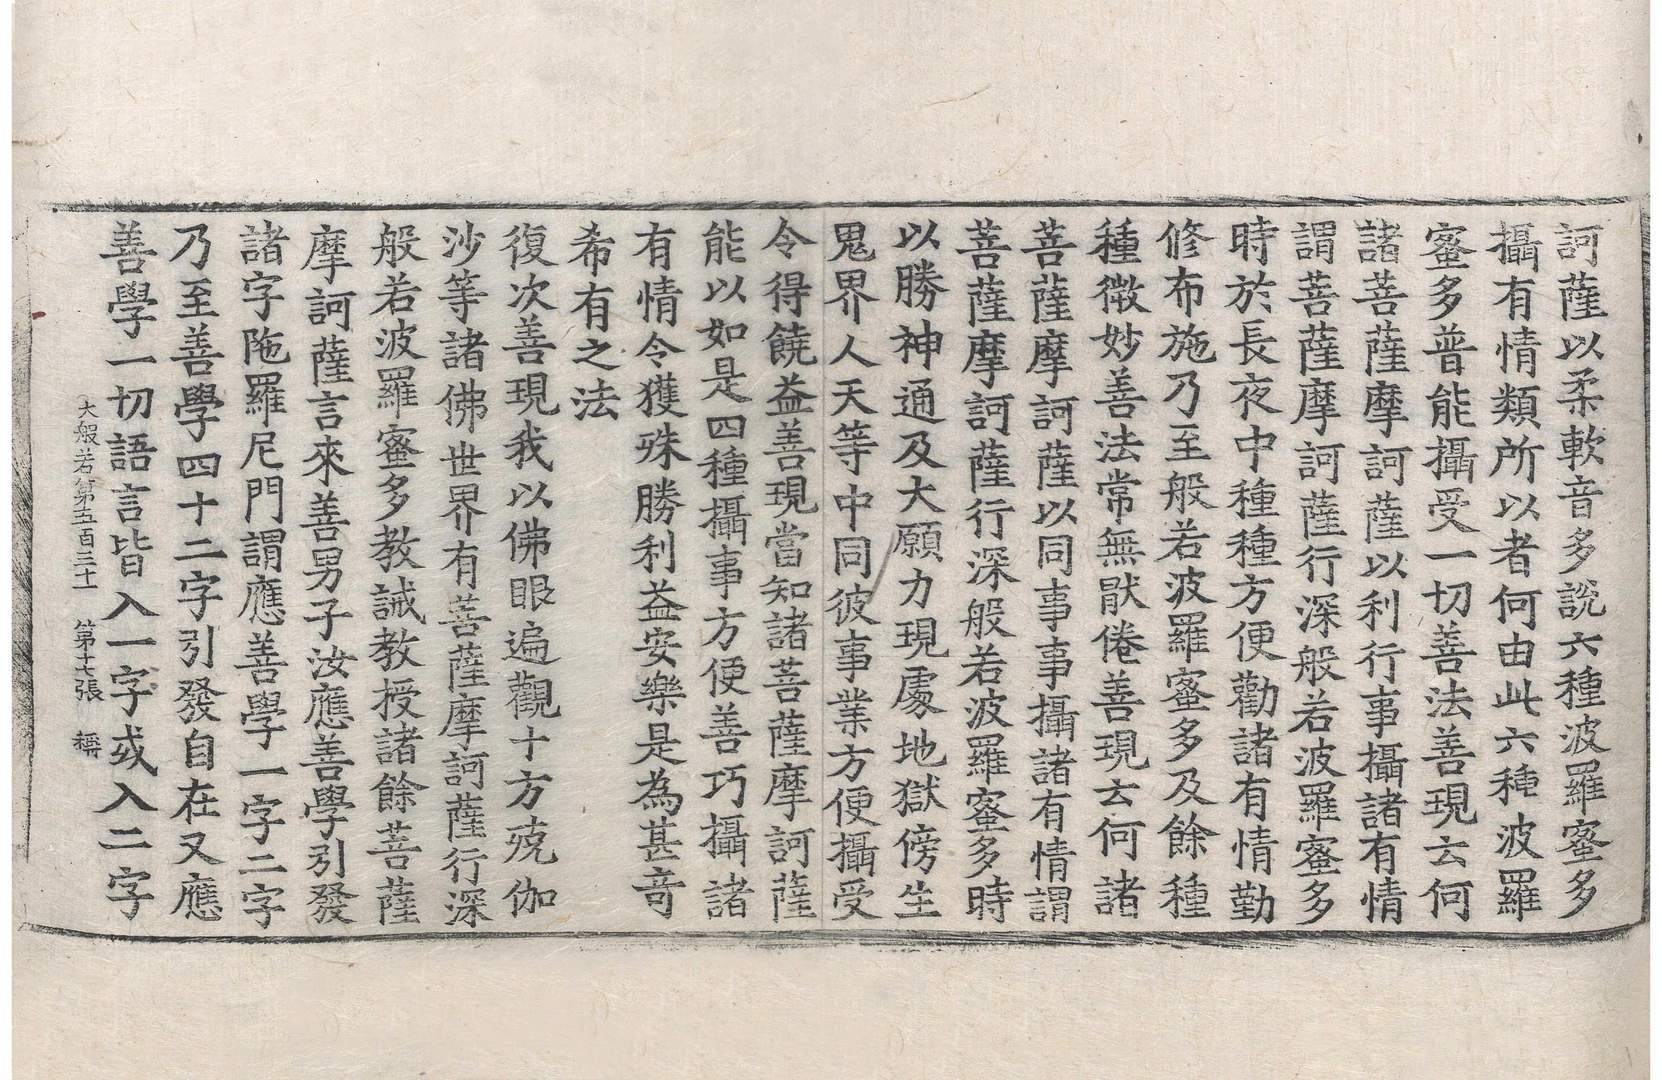 訶薩以柔軟音多說六種波羅蜜多
攝有情類所以者何由此六種波羅
蜜多普能攝受一切善法善現云何
諸菩薩摩訶薩以利行事攝諸有情
謂菩薩摩訶薩行深般若波羅蜜多
時於長夜中種種方便勸諸有情勤
修布施乃至般若波羅蜜多及餘種
種微妙善法常無猒倦善現云何諸
菩薩摩訶薩以同事事攝諸有情謂
菩薩摩訶薩行深般若波羅蜜多時
以勝神通及大願力現處地獄傍生
鬼界人天等中同彼事業方便攝受
令得饒益善現當知諸菩薩摩訶薩
能以如是四種攝事方便善巧攝諸
有情令獲殊勝利益安樂是為甚奇
希有之法
復次善現我以佛眼遍觀十方殑伽
沙等諸佛世界有菩薩摩訶薩行深
般若波羅蜜多教誡教授諸餘菩薩
摩訶薩言來善男子汝應善學引發
諸字陁羅尼門謂應善學一字二字
乃至善學四十二字引發自在又應
善學一切語言皆入一字或入二字
大般若第五百三十 第十七張 稱